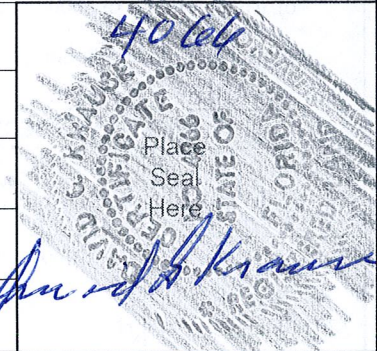 4066
DAVID G KRAUSE
CERTIFICATE
STATE OF
FLORIDA
Place
Seal
Here
David G Krause